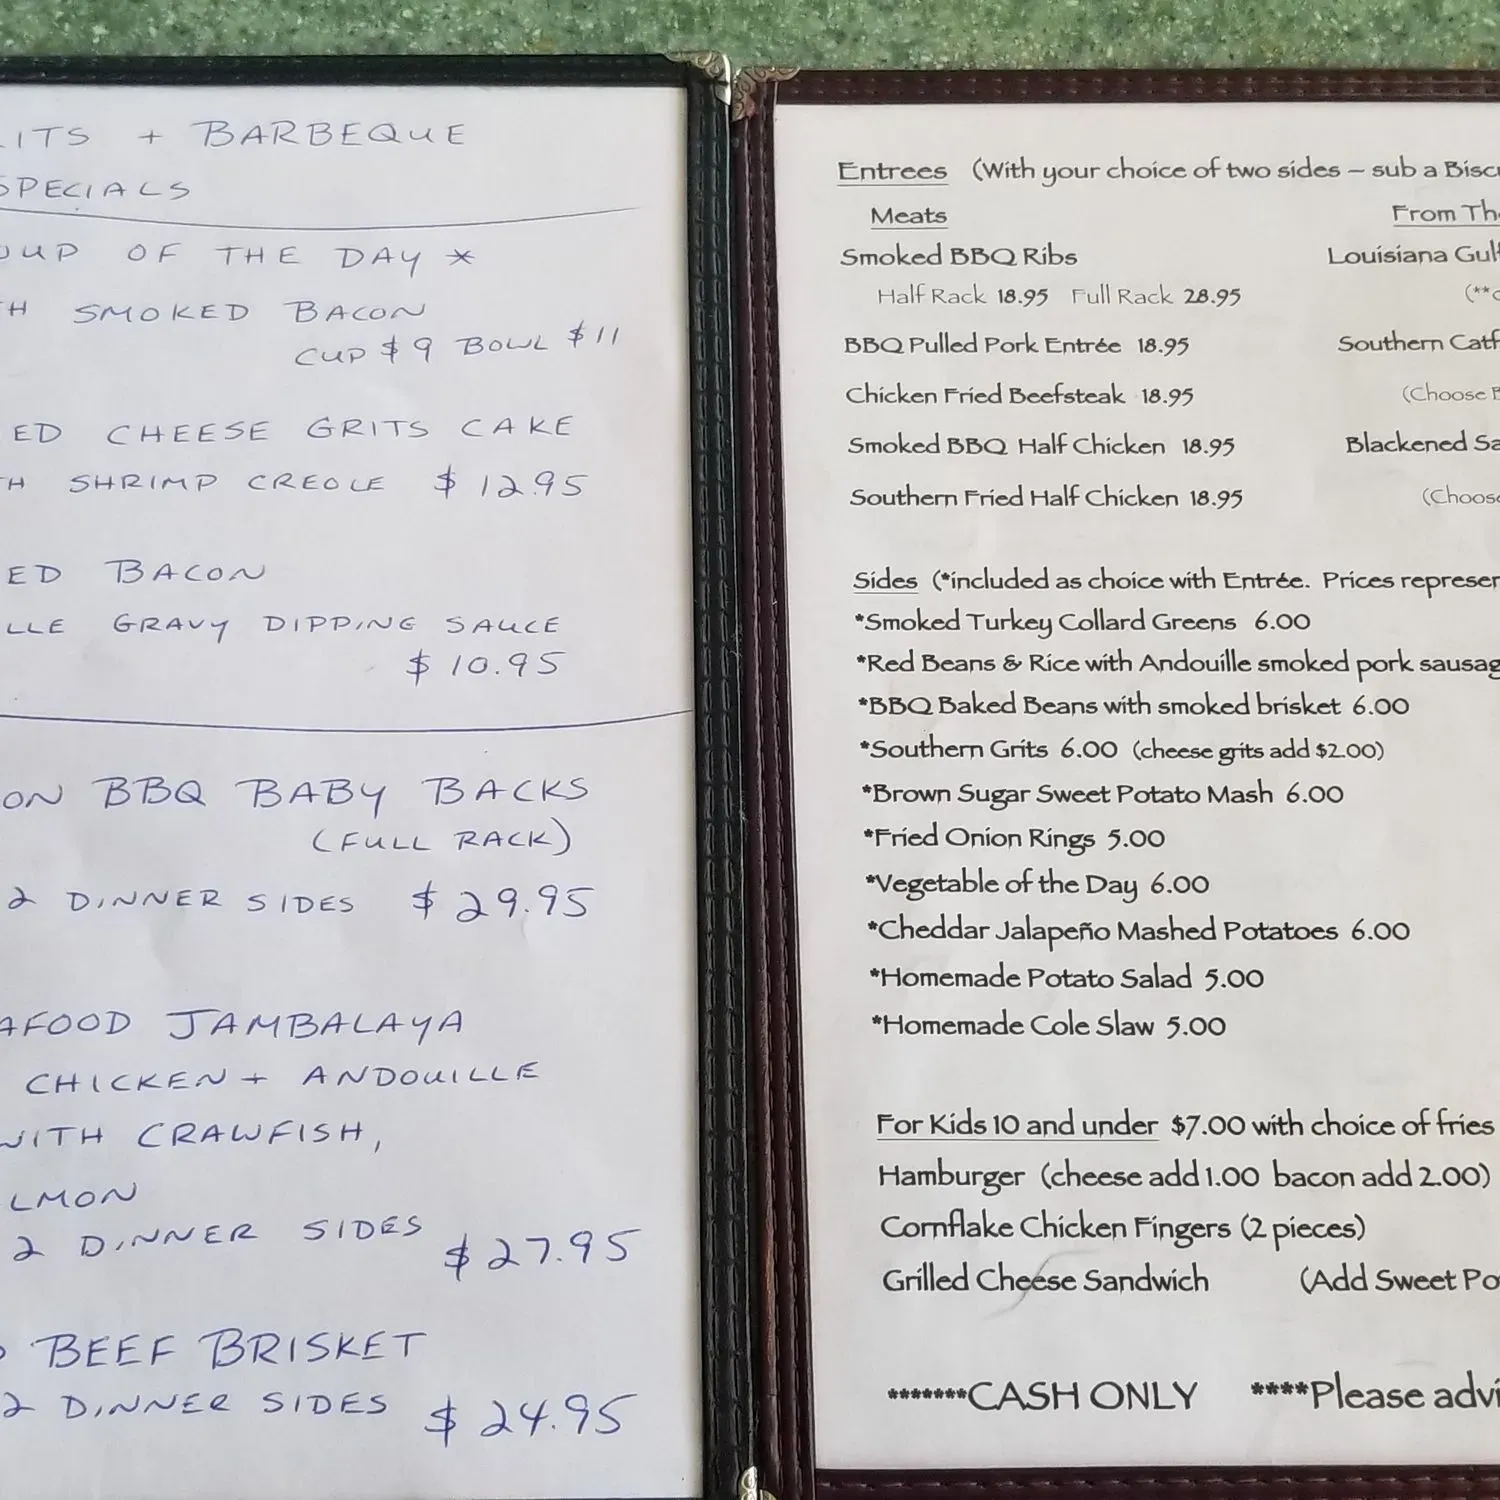 + BARBEQUE
SPECIALS
OF THE DAY *
SMOKED BACON
CUP $9 BOWL $11
CHEESE GRITS CAKE
SHRIMP CREOLE $12.95
BACON
GRAVY DIPPING SAUCE
$10.95
BBQ BABY BACKS
(FULL RACK)
2 DINNER SIDES $29.95
JAMBALAYA
CHICKEN + ANDOUILLE
WITH CRAWFISH,
2 DINNER SIDES $27.95
BEEF BRISKET
2 DINNER SIDES $24.95
Entrees (With your choice of two sides – sub a
Meats
From
Smoked BBQ Ribs
Louisiana
Half Rack 18.95 Full Rack 28.95
BBQ Pulled Pork Entrée 18.95
Southern
Chicken Fried Beefsteak 18.95
(Choose
Smoked BBQ Half Chicken 18.95
Blackened
Southern Fried Half Chicken 18.95
Sides (*included as choice with Entrée. Prices
*Smoked Turkey Collard Greens 6.00
*Red Beans & Rice with Andouille smoked pork
*BBQ Baked Beans with smoked brisket 6.00
*Southern Grits 6.00 (cheese grits add $2.00)
*Brown Sugar Sweet Potato Mash 6.00
*Fried Onion Rings 5.00
*Vegetable of the Day 6.00
*Cheddar Jalapeño Mashed Potatoes 6.00
*Homemade Potato Salad 5.00
*Homemade Cole Slaw 5.00
For Kids 10 and under $7.00 with choice of fries
Hamburger (cheese add 1.00 bacon add 2.00)
Cornflake Chicken Fingers (2 pieces)
Grilled Cheese Sandwich (Add Sweet
*******CASH ONLY ****Please